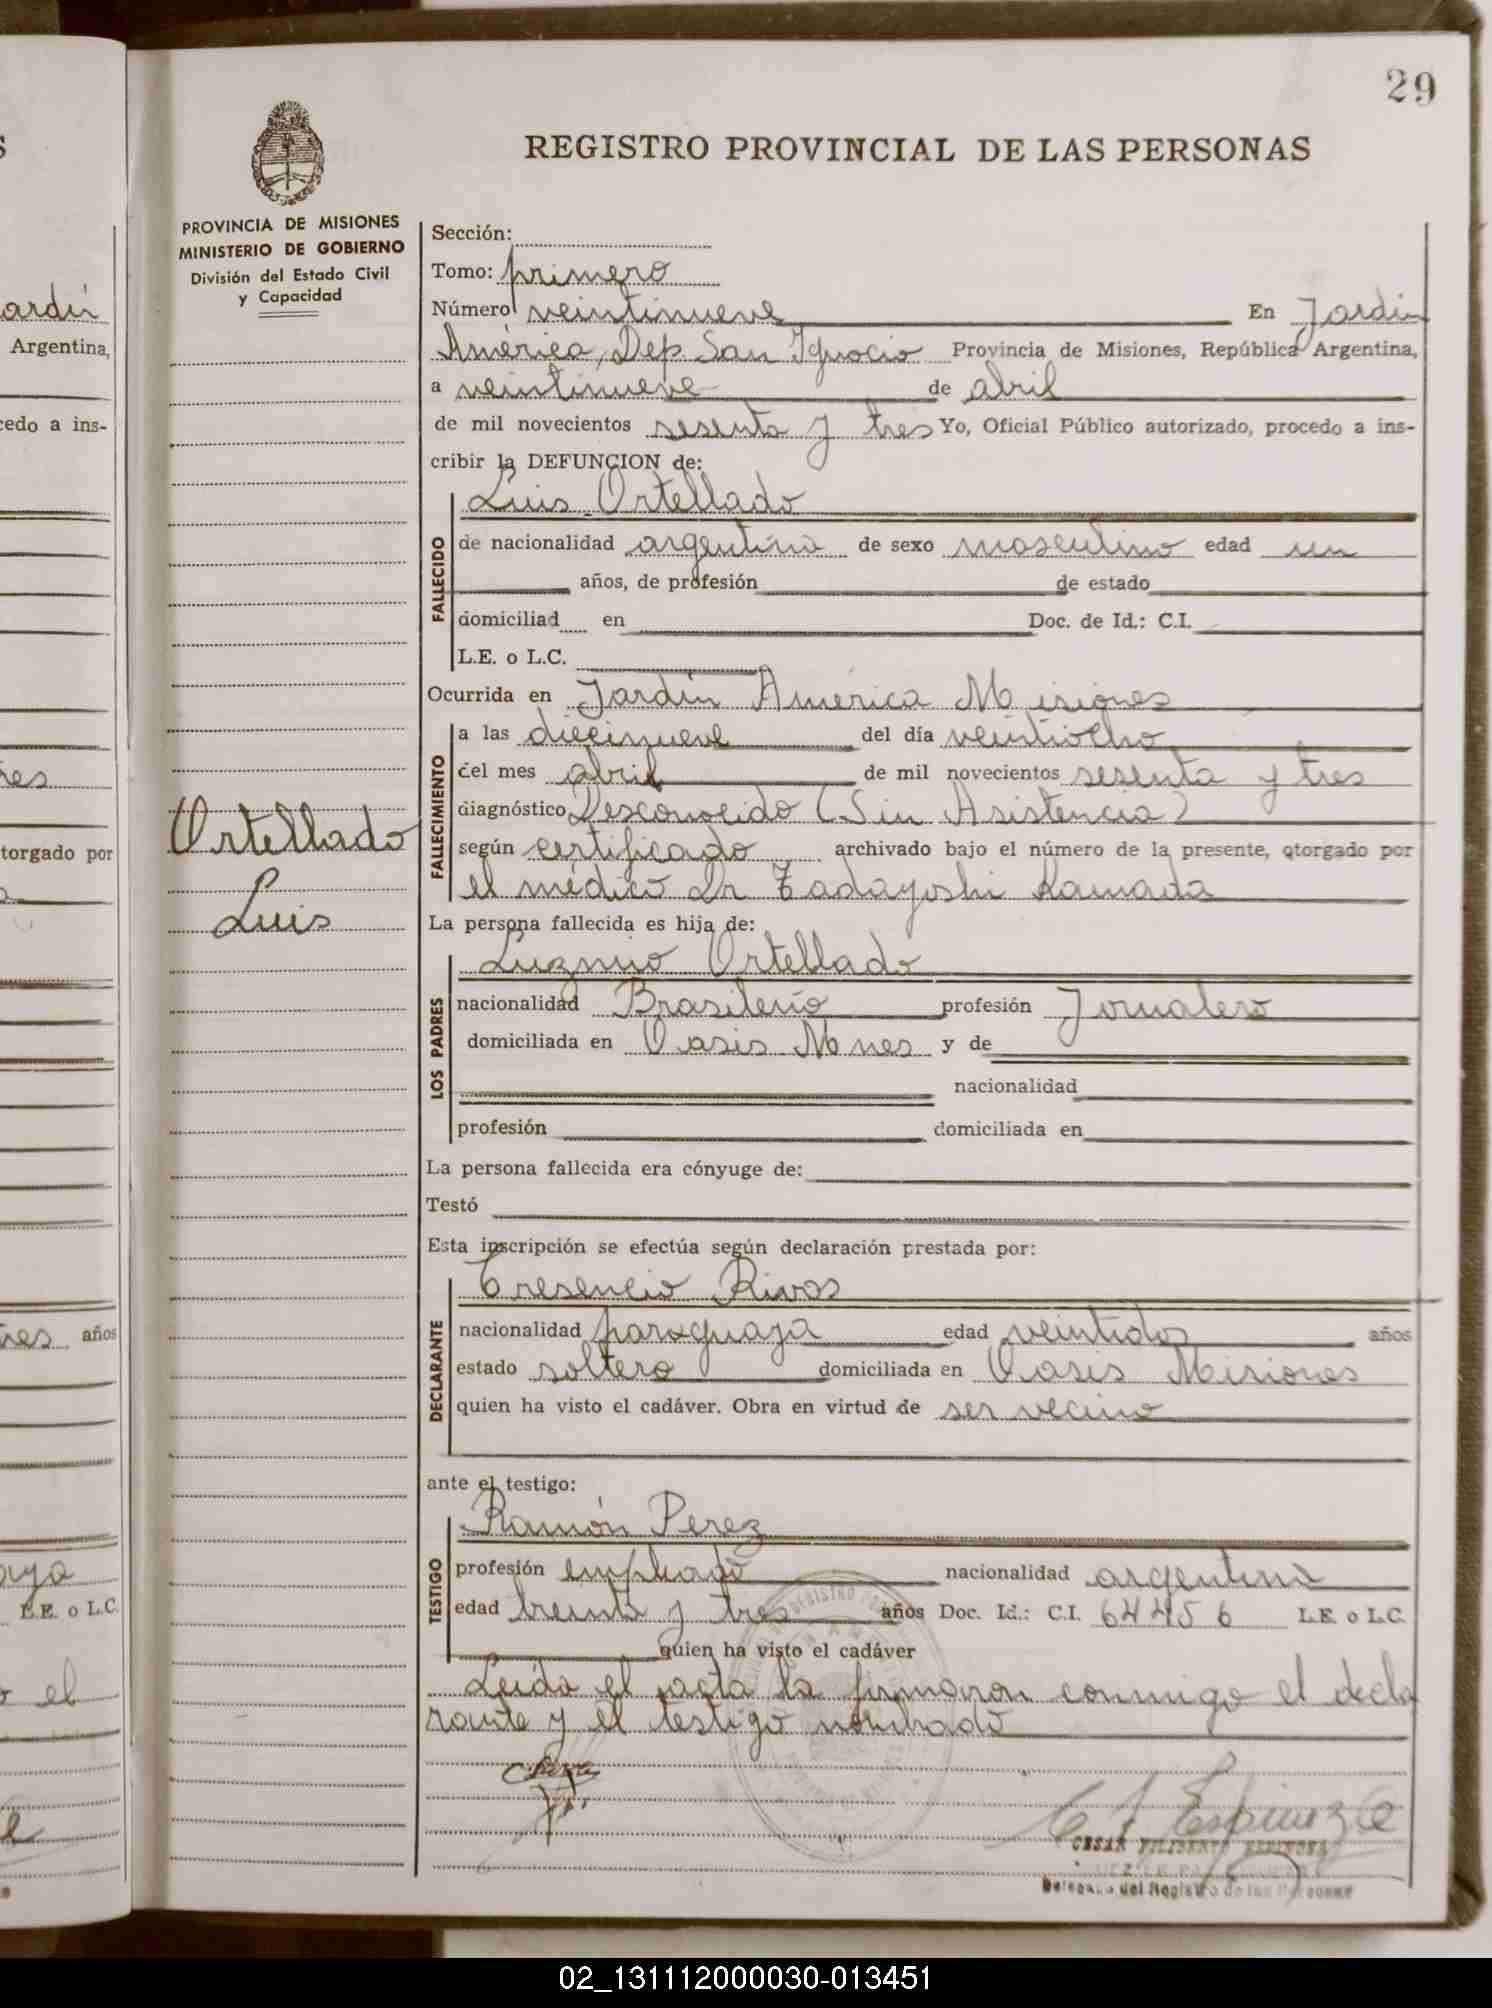 29
REGISTRO PROVINCIAL DE LAS PERSONAS
PROVINCIA DE MISIONES
MINISTERIO DE GOBIERNO
División del Estado Civil
y Capacidad
Ortellado
Luis
Sección:
Tomo: primero
Número veintinueve En Jardín
América, Dep San Ignacio Provincia de Misiones, República Argentina,
a veintinueve de abril
de mil novecientos sesenta y tres Yo, Oficial Público autorizado, procedo a ins-
cribir la DEFUNCION de:
Luis Ortellado
FALLECIDO
de nacionalidad argentina de sexo masculino edad un
años, de profesión de estado
domiciliad en Doc. de Id.: C.I.
L.E. o L.C.
Ocurrida en Jardín América Misiones
FALLECIMIENTO
a las diecinueve del día veintiocho
del mes abril de mil novecientos sesenta y tres
diagnóstico Desconocido (Sin Asistencia)
según certificado archivado bajo el número de la presente, otorgado por
el médico Dr Tadayoshi Kamada
La persona fallecida es hija de:
Luzmio Ortellado
LOS PADRES
nacionalidad Brasilerio profesión Jornalero
domiciliada en Oasis Mnes y de
nacionalidad
profesión domiciliada en
La persona fallecida era cónyuge de:
Testó
Esta inscripción se efectúa según declaración prestada por:
Cresencio Rivas
DECLARANTE
nacionalidad paraguaya edad veintidos años
estado soltero domiciliada en Oasis Misiones
quien ha visto el cadáver. Obra en virtud de ser vecino
ante el testigo:
Ramón Perez
TESTIGO
profesión empleado nacionalidad argentina
edad treinta y tres años Doc. Id.: C.I. 64456 L.E. o L.C.
quien ha visto el cadáver
Leida el acta la firmaron conmigo el decla
rante y el testigo nombrado
C A Espinoza
CESAR FILIBERTO ESPINOSA
Delegado del Registro de las Personas
ardín
Argentina,
cedo a ins-
res
torgado por
res años
aya
L.E. o L.C.
o el
02_131112000030-013451